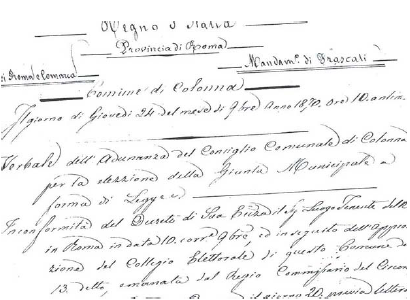 Regno d'Italia
Provincia di Roma
di Roma e Comarca
Mandam.º di Frascati
Comune di Colonna
Il giorno di Giovedì 24 del mese di 9bre Anno 1870. Ore 10 antim.
Verbale dell'Adunanza del Consiglio Comunale di Colonna
per la elezione della Giunta Municipale a
forma di Legge
In conformità del Decreto di Sua Luogo Tenente del Re
in Roma in data 10. corr.e 9bre, ed in seguito dell'Appro
zione del Collegio Elettorale di questo Comune
13. detto, emanata dal Regio Commissario del Circon
il giorno 20. previo